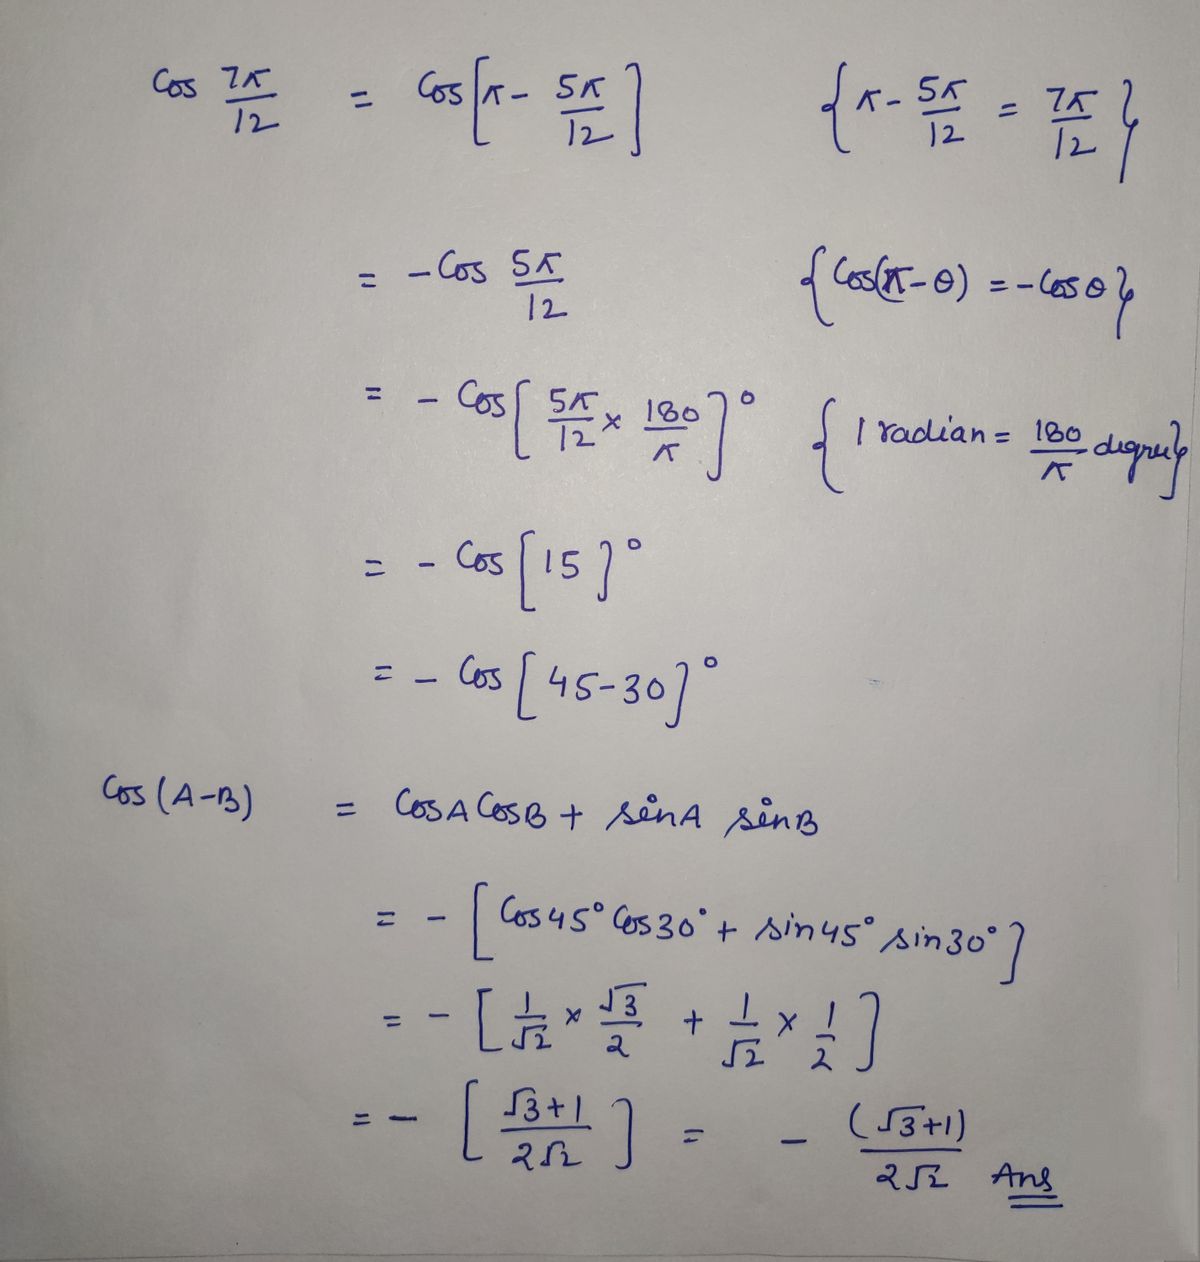 Cos 7π/12 = Cos[π - 5π/12] {π - 5π/12 = 7π/12}
= - Cos 5π/12 {Cos(π-θ) = - Cosθ}
= - Cos[5π/12 × 180/π]° {1 radian = 180/π degree}
= - Cos[15]°
= - Cos[45-30]°
Cos(A-B) = CosA CosB + sinA sinB
= - [Cos45° Cos30° + sin45° sin30°]
= - [1/√2 × √3/2 + 1/√2 × 1/2]
= - [√3+1/2√2] = - (√3+1)/2√2 Ans